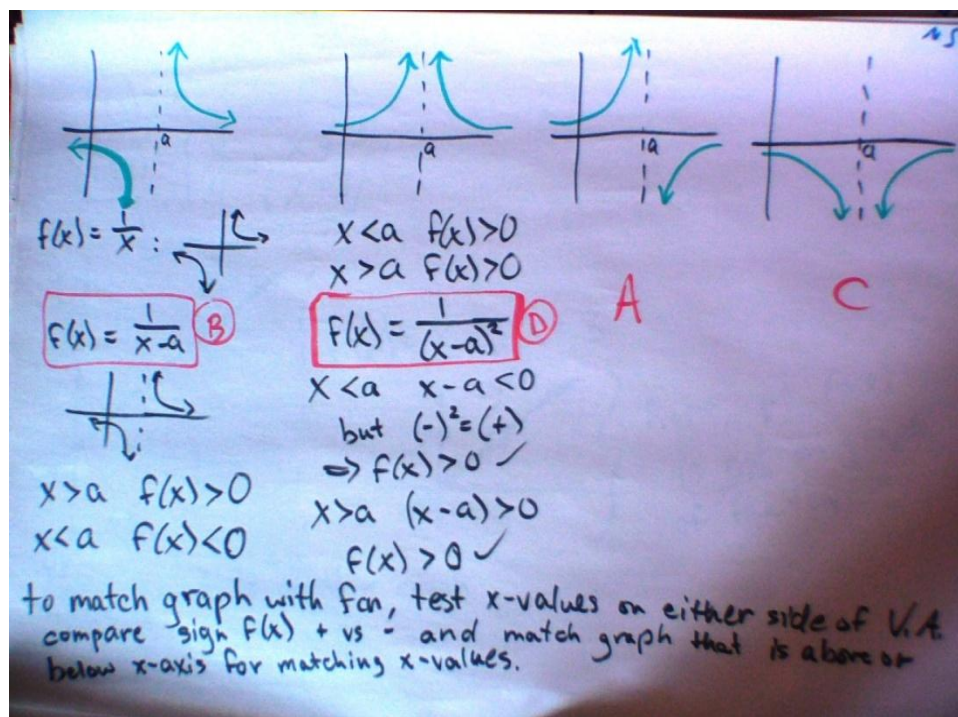 NS
a
a
a
a
f(x) = 1/x :
f(x) = 1/(x-a) B
x>a f(x)>0
x<a f(x)<0
x<a f(x)>0
x>a f(x)>0
f(x) = 1/(x-a)² D
x<a x-a<0
but (-)²=(+)
⇒ f(x)>0 ✓
x>a (x-a)>0
f(x)>0 ✓
A
C
to match graph with fcn, test x-values on either side of V.A.
compare sign f(x) + vs - and match graph that is above or
below x-axis for matching x-values.